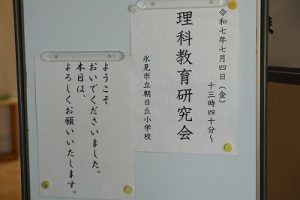 令和七年七月四日(金)
十三時四十分~
理科教育研究会
氷見市立朝日丘小学校
ようこそ
おいでくださいました。
本日は、
よろしくお願いいたします。